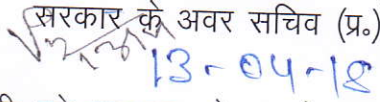 सरकार के अवर सचिव (प्र०)
13-04-18